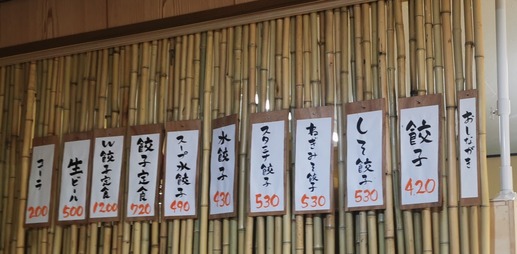 おしながき
餃子
420
しそ餃子
530
ねぎみそ餃子
530
スタミナ餃子
530
水餃子
430
スープ水餃子
490
餃子定食
720
W餃子定食
1200
生ビール
500
コーラ
200